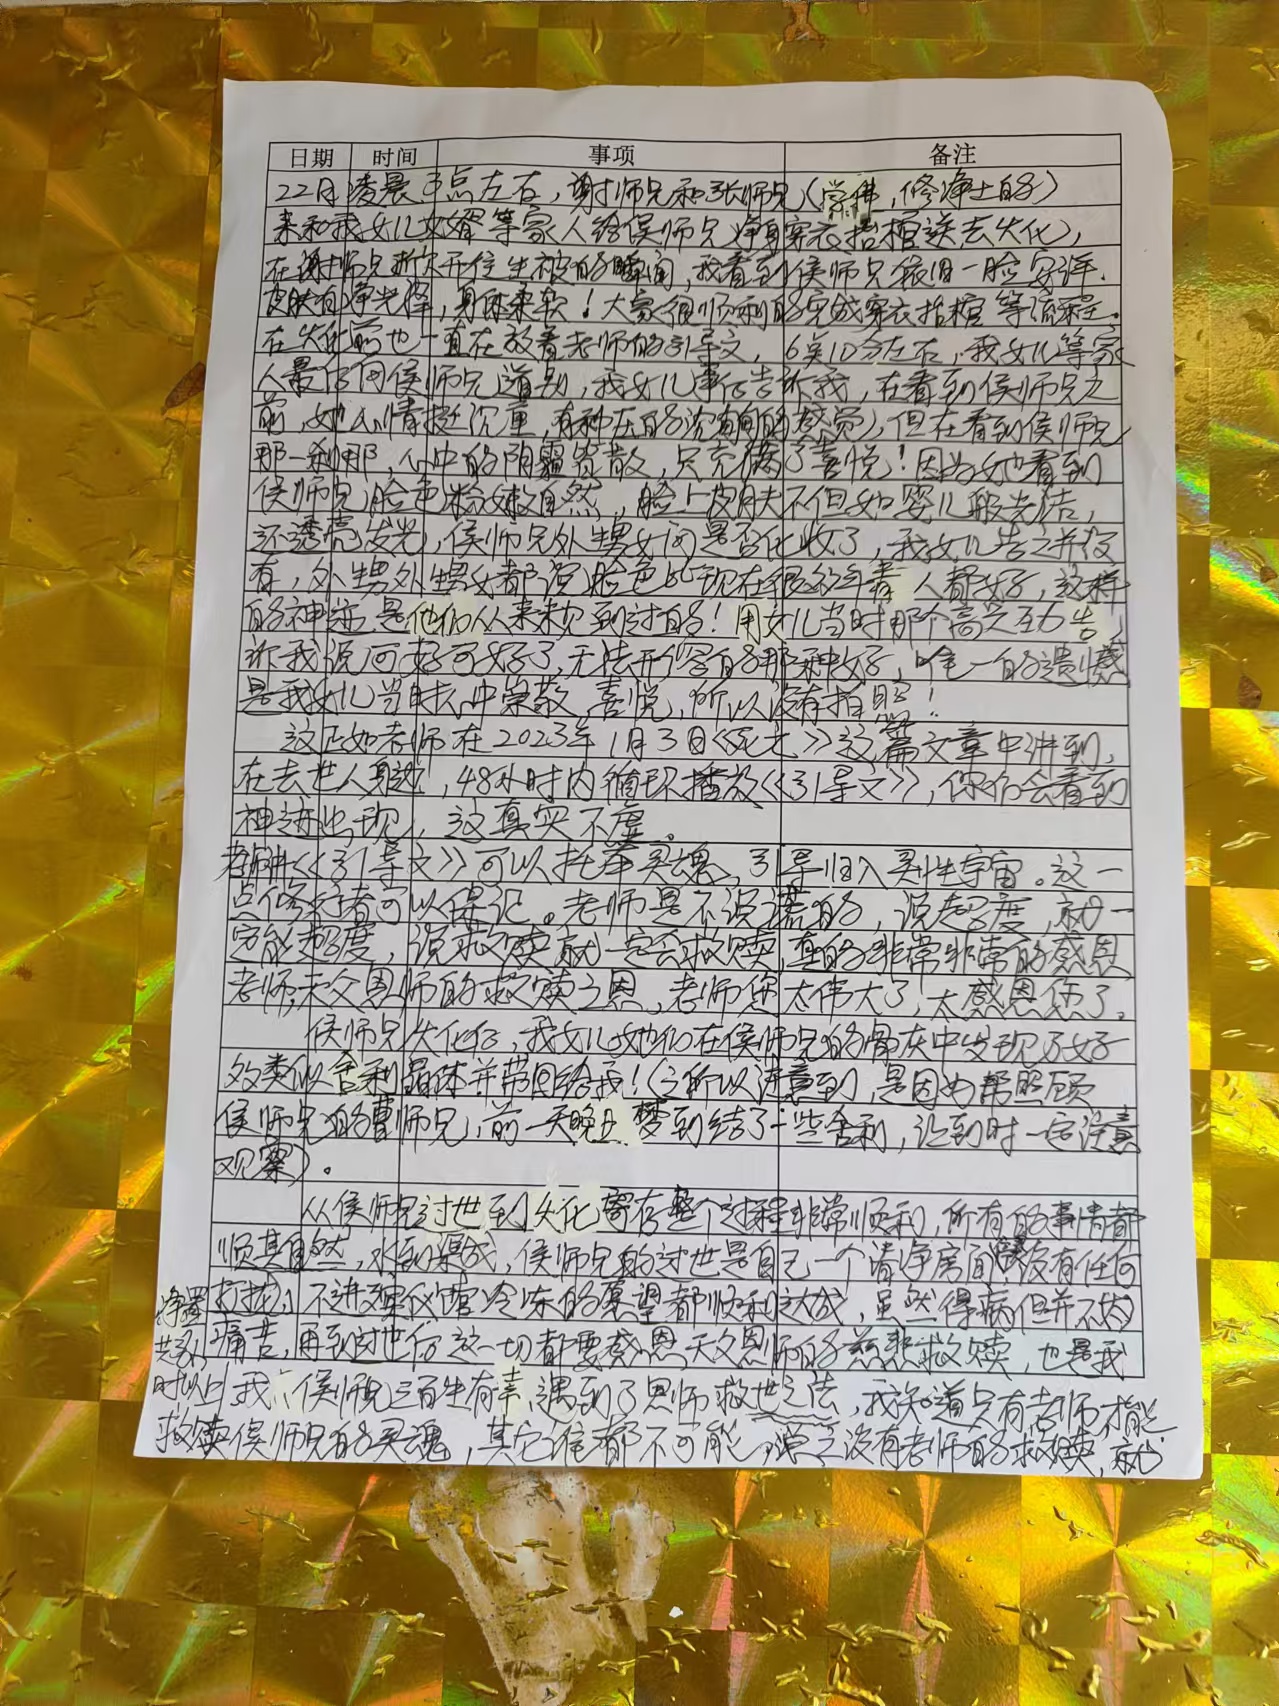 日期 时间 事项 备注
22日凌晨3点左右，谢师兄和张师兄（学佛，修净土的）
来和我女儿女婿等家人给侯师兄净身穿衣抬棺送去火化，
在谢师兄掀开往生被的瞬间，我看到侯师兄依旧一脸安详．
皮肤白净光泽，身体柔软！大家很顺利的完成穿衣抬棺等流程．
在火化前也一直在放着老师的引导文，6点10分左右，我女儿等家
人最后同侯师兄道别，我女儿事后告诉我，在看到侯师兄之
前，她心情挺沉重，有种在的沉的感觉，但在看到侯师兄
那一刹那，心中的阴霾皆散，只充满了喜悦！因为她看到
侯师兄脸色粉嫩自然，脸上皮肤不但如婴儿般光洁，
还透亮发光，侯师兄外甥女问是否化妆了，我女儿告之并没
有，外甥外甥女都说脸色比现在很多年青人都好，这样
的神迹是他们从来未见到过的！用女儿当时那个高兴劲告
诉我说可好可好了，无法形容的那种好，唯一的遗憾
是我女儿当时太冲崇敬喜悦，所以没有拍照！
这正如老师在2023年1月3日《死亡》这篇文章中讲到，
在去世人身边，48小时内循环播放《引导文》，你们会看到
神迹出现，这真实不虚。
老师讲《引导文》可以托举灵魂，引导归入灵性宇宙。这一
点修行者可以保证。老师是不说谎的，说超度，就一
定能超度，说救赎就一定会救赎，真的非常非常的感恩
老师天父恩师的救赎之恩，老师您太伟大了，太感恩您了。
侯师兄火化后，我女儿她们在侯师兄的骨灰中发现了好
多类似舍利晶体并带回给我！（之所以注意到，是因为帮照顾
侯师兄的曹师兄，前一天晚上梦到结了一些舍利，让到时一定注意
观察）。
从侯师兄过世到火化寄存整个过程非常顺利，所有的事情都
顺其自然，水到渠成，侯师兄的过世是自己一个清净房间没有任何
打扰，不进殡仪馆冷冻的冀望都顺利达成，虽然得病但并不太
痛苦，再到过世后这一切都要感恩天父恩师的慈悲救赎，也是我
净置
共
时以上
我侯师兄三百生有幸遇到了恩师救世之法，我知道只有老师才能
救赎侯师兄的灵魂，其它谁都不可能，总之没有老师的救赎，就